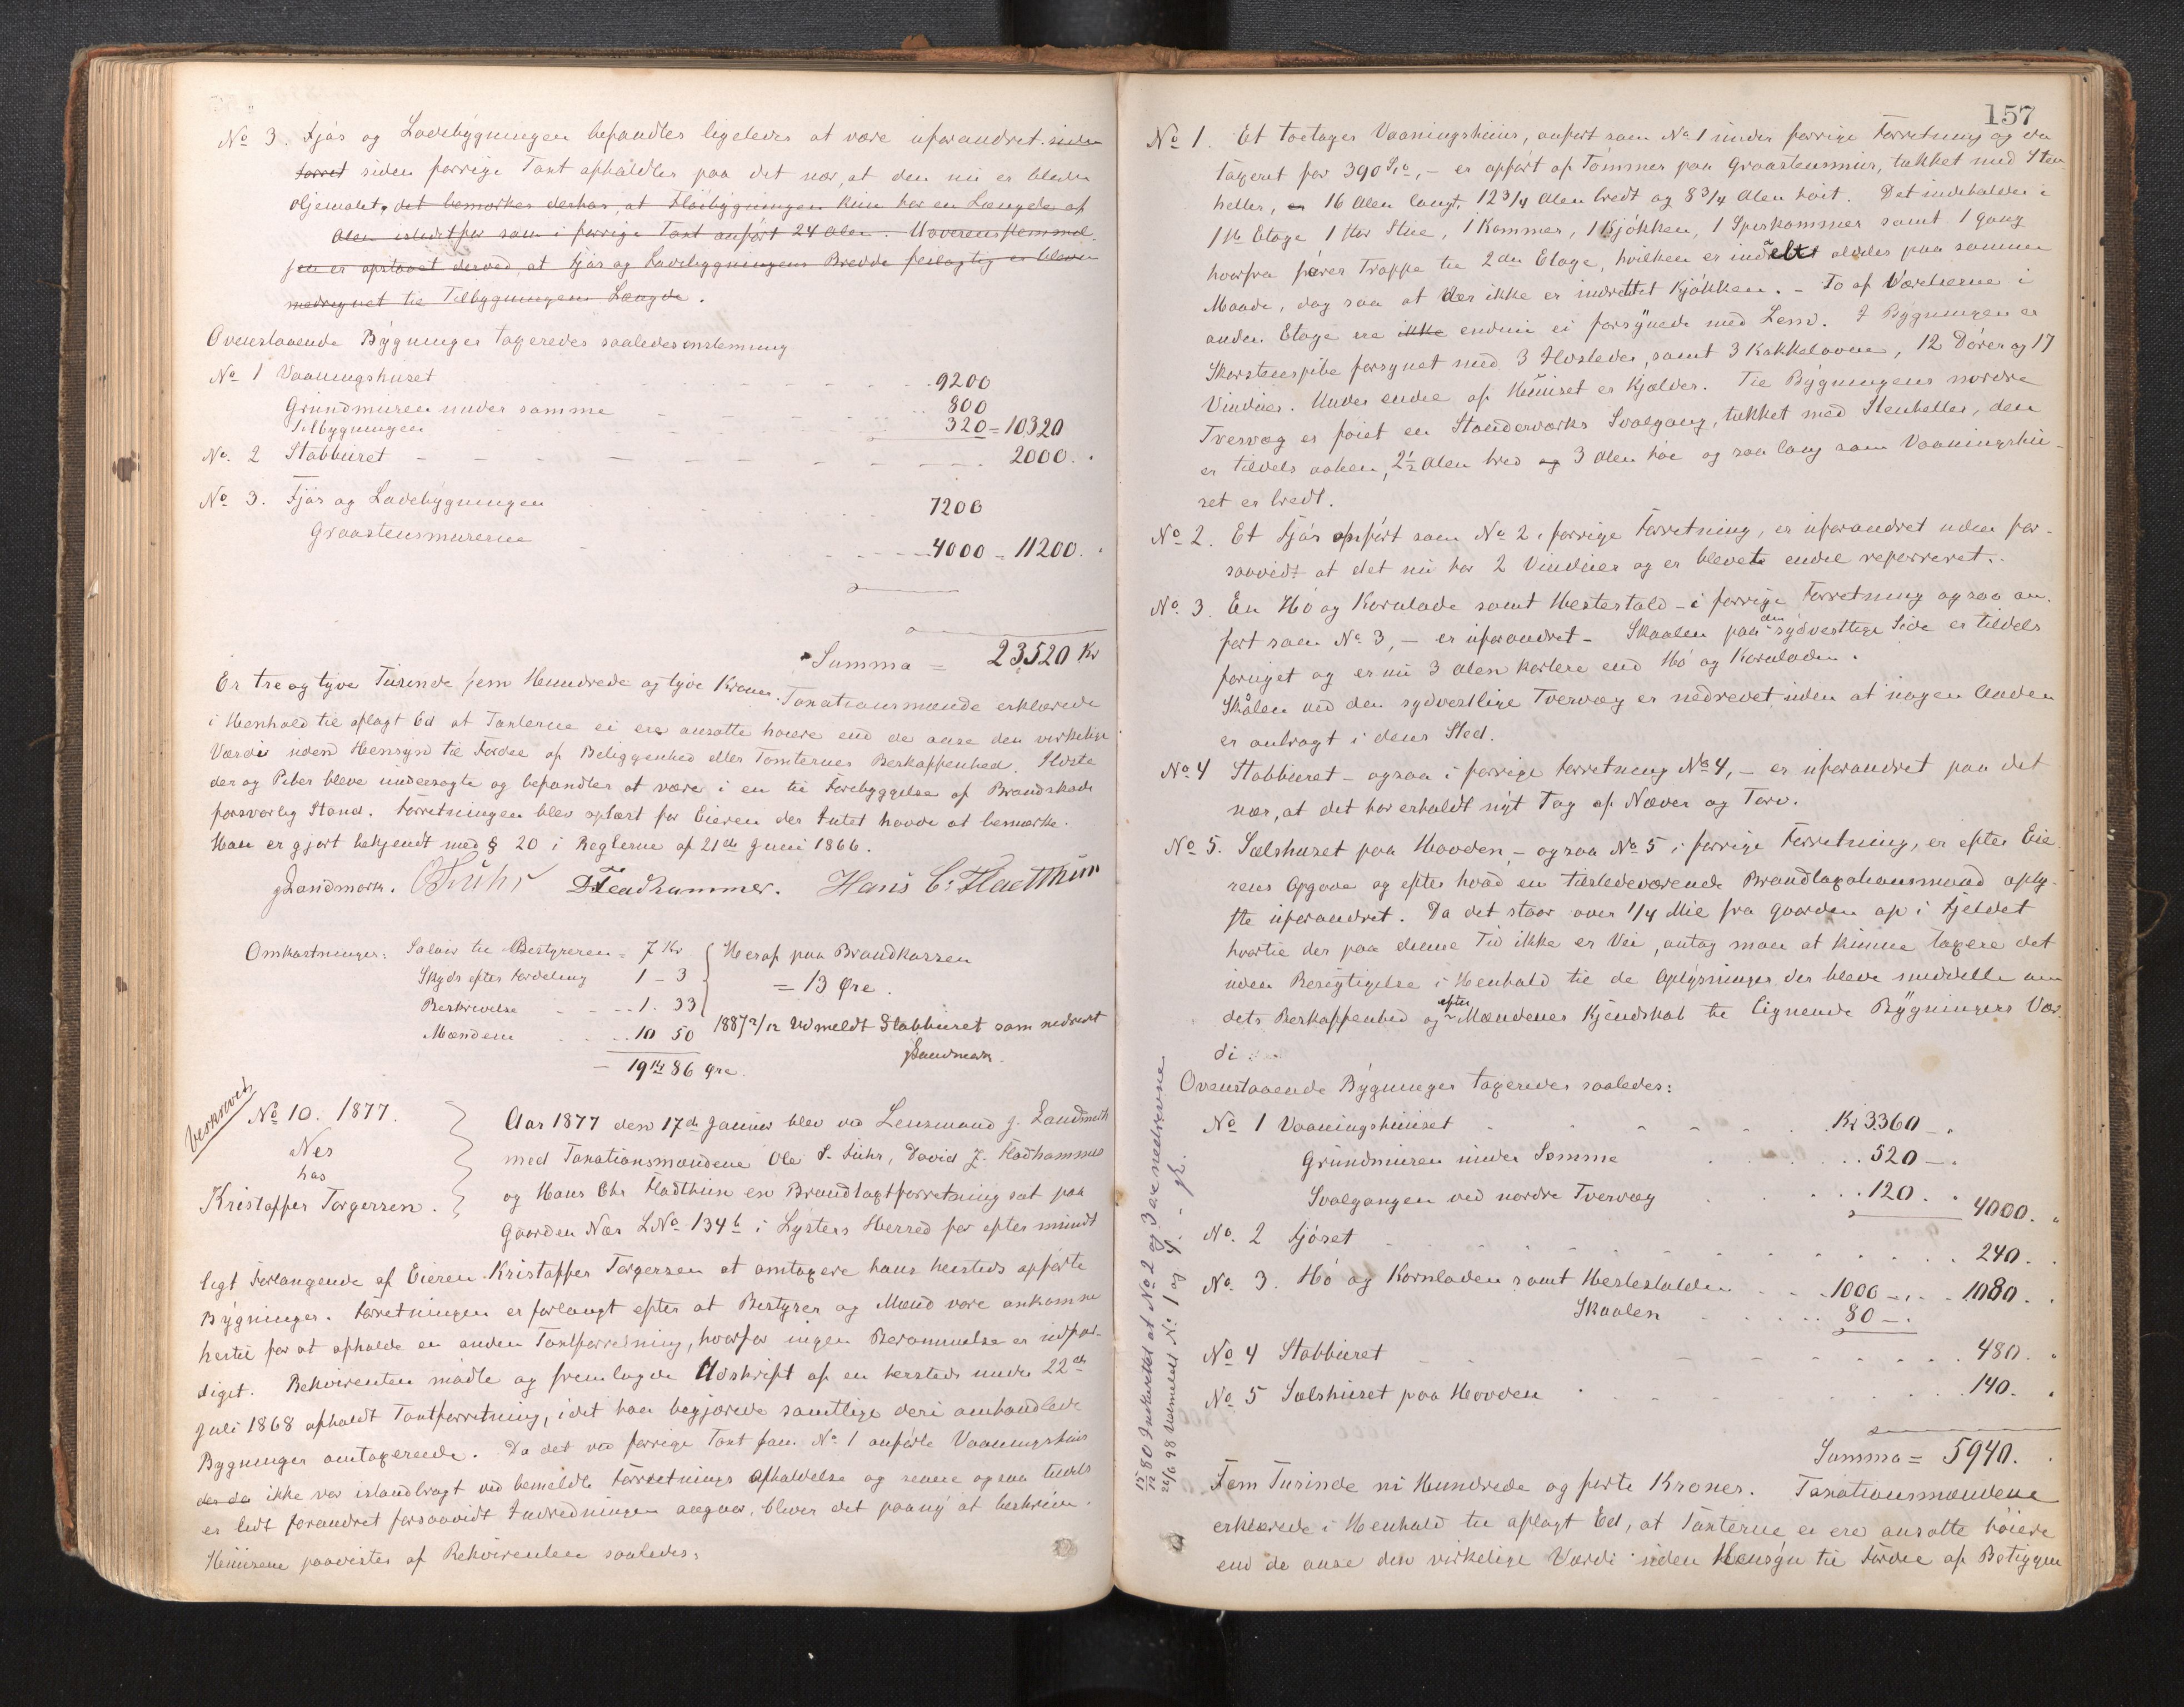 No 3. Fjøs og Ladebygningen befandtes ligeledes at være uforandret. siden
forret siden forrige Taxt afholdtes paa det nær, at den nu er bleven
Oljemalet. det bemærkes derhos, at Fløibygningen kun har en Længde af
Alen istedetfor som i forrige Taxt anført 24 Alen. Uoverensstemmel
sen er opstaaet derved at Fjøs og Ladebygningens Bredde feilagtig er bleven
medregnet til Tilbygningens Længde.
Ovenstaaende Bygninger taxeredes saaledes enstemmig
No 1 Vaaningshuset 9200
Grundmuren under samme 800
Tilbygningen 320 = 10320
No. 2 Stabburet 2000.
No 3. Fjøs og Ladebygningen 7200
Graastensmurerne 4000 = 11200.
Summa = 23,520 Kr
Er tre og tyve Tusinde fem Hundrede og tyve Kroner. Taxationsmænde erklærede
i Henhold til aflagt Ed at Taxterne ei ere ansatte høiere end de anse den virkelige
Værdi uden Hensyn til Fordel af Beliggenhed eller Tomternes Beskaffenhed. Ildste
der og Piber bleve undersøgte og befandtes at være i en til Forebyggelse af Brandskade
forsvarlig Stand. Forretningen blev oplæst for Eieren der Intet havde at bemærke.
Han er gjort bekjendt med § 20 i Reglerne af 21de Juni 1866.
J Landmark. O Fuhr D Fladhammer. Hans C: Fladthun
Omkostninger: Salair til Bestyreren = 7 Kr Heraf paa Brandkassen
Skyds efter Fordeling 1 - 3 = 13 Øre.
Beskrivelse 1. 33
Mændene 10 50 1887 2/12 Udmeldt Stabburet som nedrevet
19 Kr 86 Øre. JLandmark.
beskreved
No 10. 1877.
Nes
hos
Kristoffer Torgersen.
Aar 1877 den 17de Januar blev ved Lensmand J. Landmark
med Taxationsmændene Ole S. Fuhr, David J. Fladhammer
og Hans Chr Fladthun en Brandtaxtforretning sat paa
Gaarden Næs LNo 134b i Lysters Herred for efter mundt
ligt Forlangende af Eieren Kristoffer Torgersen at omtaxere hans hersteds opførte
Bygninger. Forretningen er forlangt efter at Bestyrer og Mænd vare ankomne
hertil for at afholde en anden Taxtforretning, hvorfor ingen Berammelse er udfær-
diget. Rekvirenten mødte og fremlagde Udskrift af en hersteds under 22de
Juli 1868 afholdt Taxtforretning, idet han begjærede samtlige deri omhandlede
Bygninger omtaxerede. Da det ved forrige Taxt som No 1 anførte Vaaningshus
der da ikke var istandbragt ved bemeldte Forretnings Afholdelse og senere ogsaa tildels
er lidt forandret forsaavidt Indredningen angaar, bliver det paany at beskrive.
Husene paavistes af Rekvirenten saaledes:
157
No 1. Et toetages Vaaningshuus, anført som No 1 under forrige Forretning og da
taxeret for 390 Spd, - er opført af Tømmer paa Graastensmur, tækket med Sten
heller, er 16 Alen langt, 12 3/4 Alen bredt og 8 3/4 Alen høit. Det indeholder i
1ste Etage 1 stor Stue, 1 Kammer, 1 Kjøkken, 1 Spiskammer samt 1 Gang
hvorfra fører Trappe til 2den Etage, hvilken er inddelt aldeles paa samme
Maade, dog saa at der ikke er indrettet Kjøkken. - To af Værelserne i
anden Etage ere ikke endnu ei forsynede med Lem. I Bygningen er
Skorstenspibe forsynet med 3 Ildsteder, samt 3 Kakkelovne, 12 Dører og 17
Vinduer. Under endel af Huuset er Kjælder. Til Bygningens nordre
Tvervæg er føiet en Standerværks Svalgang, tækket med Stenheller, den
er tildels aaben, 2 1/2 Alen bred og 3 Alen høi og saa lang som Vaaningshu-
set er bredt.
No 2. Et Fjøs opført som No 2 i forrige Forretning, er uforandret uden for-
saavidt at det nu har 2 Vinduer og er blevet endel reparreret.
No. 3. En Hø og Kornlade samt Hestestald - i forrige Forretning ogsaa an-
ført som No 3, - er uforandret - Skaalen paa den sydvestlige Side er tildels
fornyet og er nu 3 Alen kortere end Hø og Kornladen.
Skålen ved den sydvestlige Tvervæg er nedrevet uden at nogen Anden
er anbragt i dens Sted.
No 4 Stabburet - ogsaa i forrige Forretning No 4, - er uforandret paa det
nær, at det har erholdt nyt Tag af Næver og Torv.
No 5. Sælshuset paa Hovden, - ogsaa No 5 i forrige Forretning, er efter Eie-
rens Opgave og efter hvad en tilstedeværende Brandtaxationsmand oply-
ste uforandret. Da det staar over 1/4 Mil fra Gaarden op i Fjeldet
hvortil der paa denne Tid ikke er Vei, antog man at kunne taxere det
uden Besigtigelse i Henhold til de Oplysninger der bleve meddelte om
dets Beskaffenhed og efter Mændenes Kjendskab til lignende Bygningers Vær-
di.
Ovenstaaende Bygninger taxeredes saaledes:
No 1 Vaaningshuuset Kr 3360 -
Grundmuren under Samme 520 -
Svalgangen ved nordre Tvervæg 120. 4000.
No. 2 Fjøset 240.
No. 3. Hø og Kornladen samt Hestestalden 1000 - 1080.
Skaalen 80 -
No 4 Stabburet 480.
No 5 Sælshuset paa Hovden 140.
Summa = 5940.
Fem Tusinde ni Hundrede og førti Kroner. Taxationsmændene
erklærede i Henhold til aflagt Ed, at Taxterne ei ere ansatte høiere
end de anse den virkelige Værdi uden Hensyn til Fordel af Beliggen
15/12 80 at No 2 og 3 ere nedrevne
26/6 98 Udmeldt No 1 og 4.